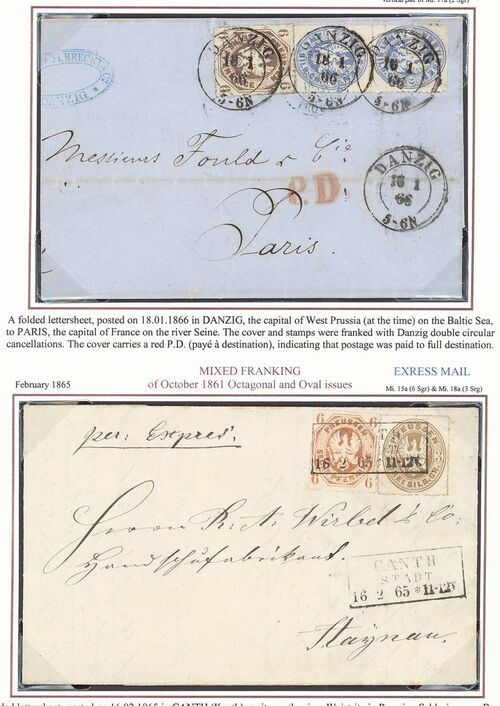 vertical pair of Mi. 17a (2 Sgr)
DANZIG
18 1
66
5-6N
DANZIG
18 1
66
5-6N
DANZIG
18 1
66
5-6N
DANZIG
Messieurs Fould & Cie
DANZIG
18 1
66
5-6N
P.D.
Paris.
A folded lettersheet, posted on 18.01.1866 in DANZIG, the capital of West Prussia (at the time) on the Baltic Sea,
to PARIS, the capital of France on the river Seine. The cover and stamps were franked with Danzig double circular
cancellations. The cover carries a red P.D. (payé à destination), indicating that postage was paid to full destination.
MIXED FRANKING EXRESS MAIL
February 1865 of October 1861 Octagonal and Oval issues Mi. 15a (6 Sgr) & Mi. 18a (3 Srg)
per: Expres.
6 PREUSSEN 6
PREUSSEN
16 2 65 * 11-12V
6 PFENNIGE 6
DREI SILB. GR.
Herrn R. A. Wirbel & Co:
Handschufabrikant.
CANTH
STADT
16 2 65 * 11-12V
Haynau.